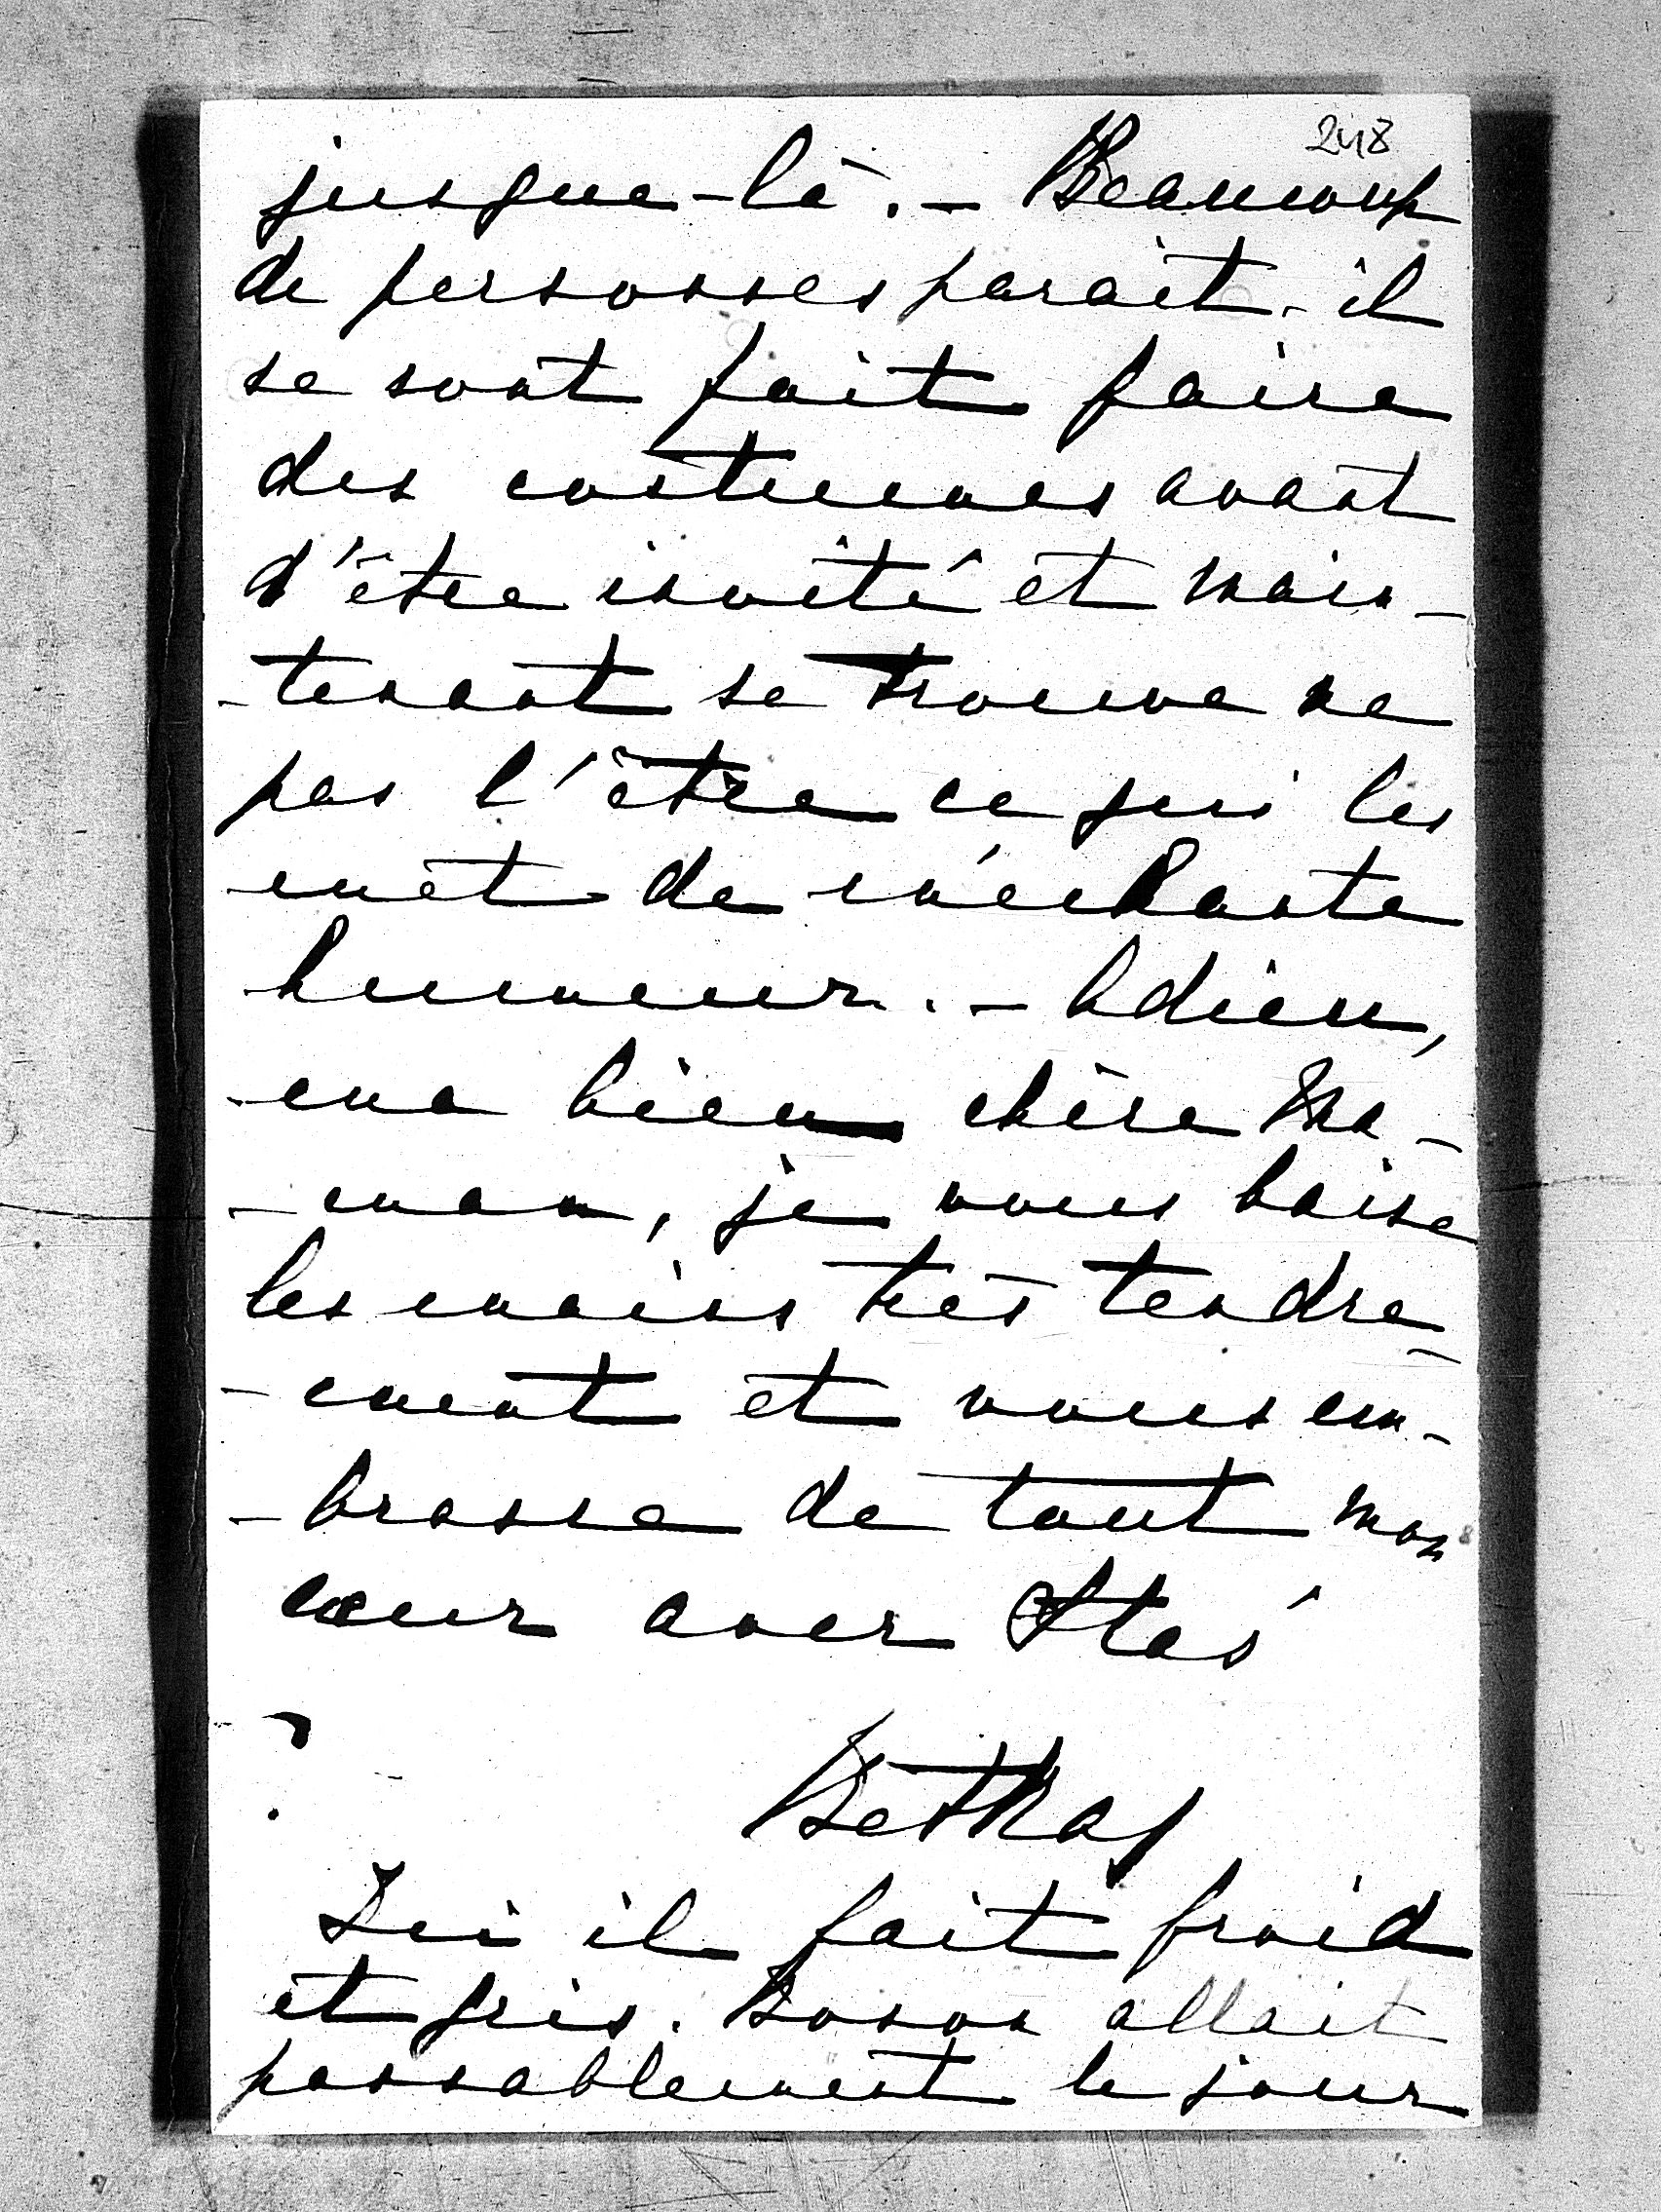 248
jusque-là. - Beaucoup
de personnes parait-il
se sont fait faire
des costumes avant
d'être invité et main-
-tenant se trouve ne
pas l'être ce qui les
met de méchante
humeur. - Adieu,
ma bien chère Ma-
-man, je vous baise
les mains très tendre-
-ment et vous em-
-brasse de tout mon
cœur avec Stas
Bethay
Ici il fait froid
et gris. Bonon allait
passablement le jour